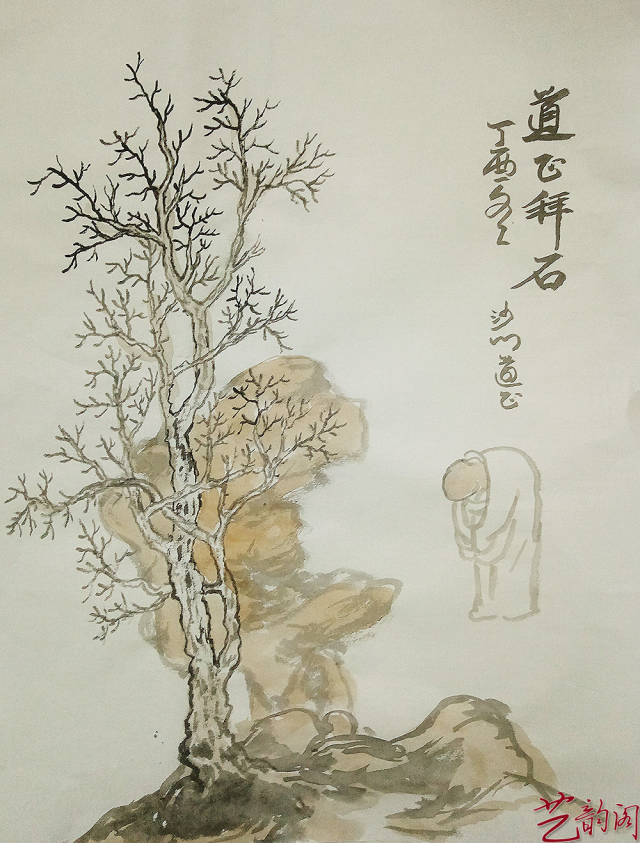 道正拜石
丁酉冬
沙门道正
艺韵阁